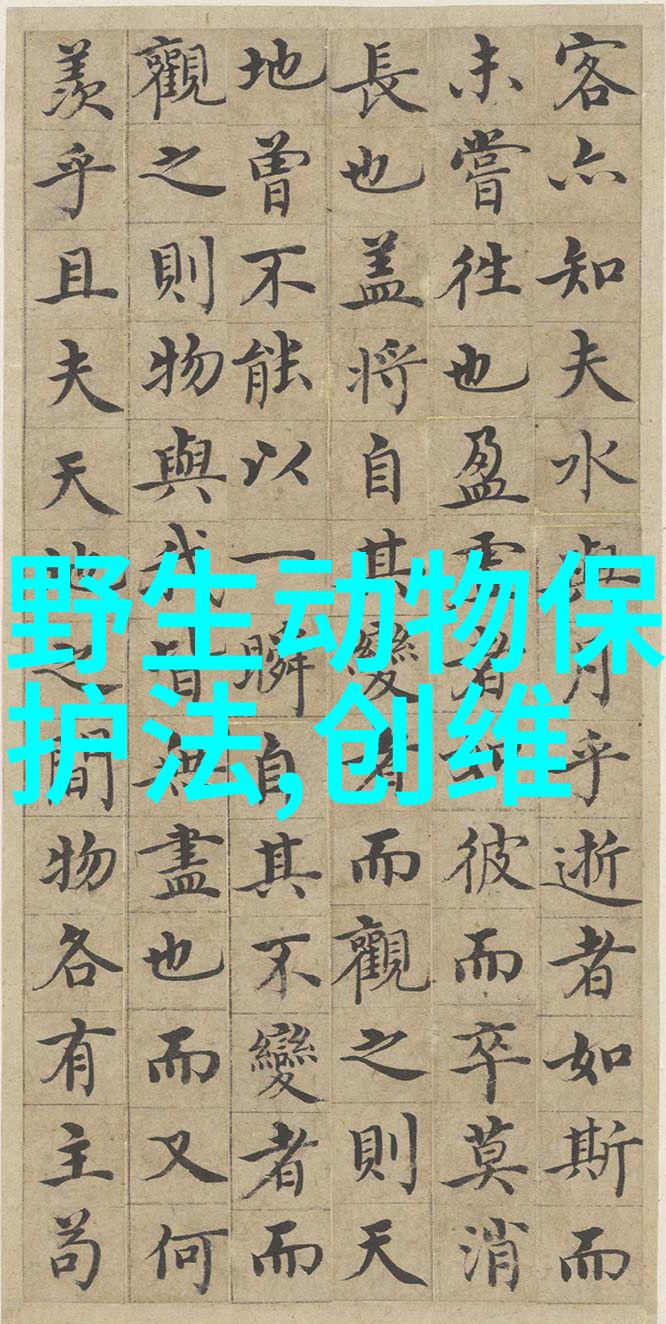 客亦知夫水與月乎逝者如斯而
未嘗徃也盈虛者如彼而卒莫消
長也盖將自其變者而觀之則天
地曾不能以一瞬自其不變者而
觀之則物與我皆無盡也而又何
羨乎且夫天地之間物各有主苟
野生动物保
护法,创维